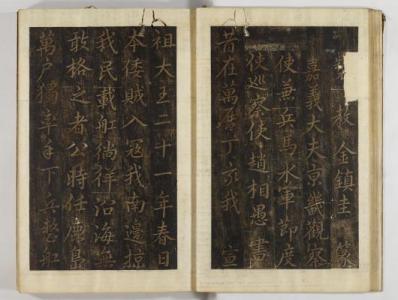 校 金鎮圭 篆
嘉義大夫京畿觀察
使兼兵馬水軍節度
使巡察使趙相愚書
昔在萬曆丁亥我 宣
祖大王二十一年春日
本倭賊入寇我南邊掠
我民載舡徜徉沿海無
敢格之者公時任鹿島
萬户獨率手下兵整舡